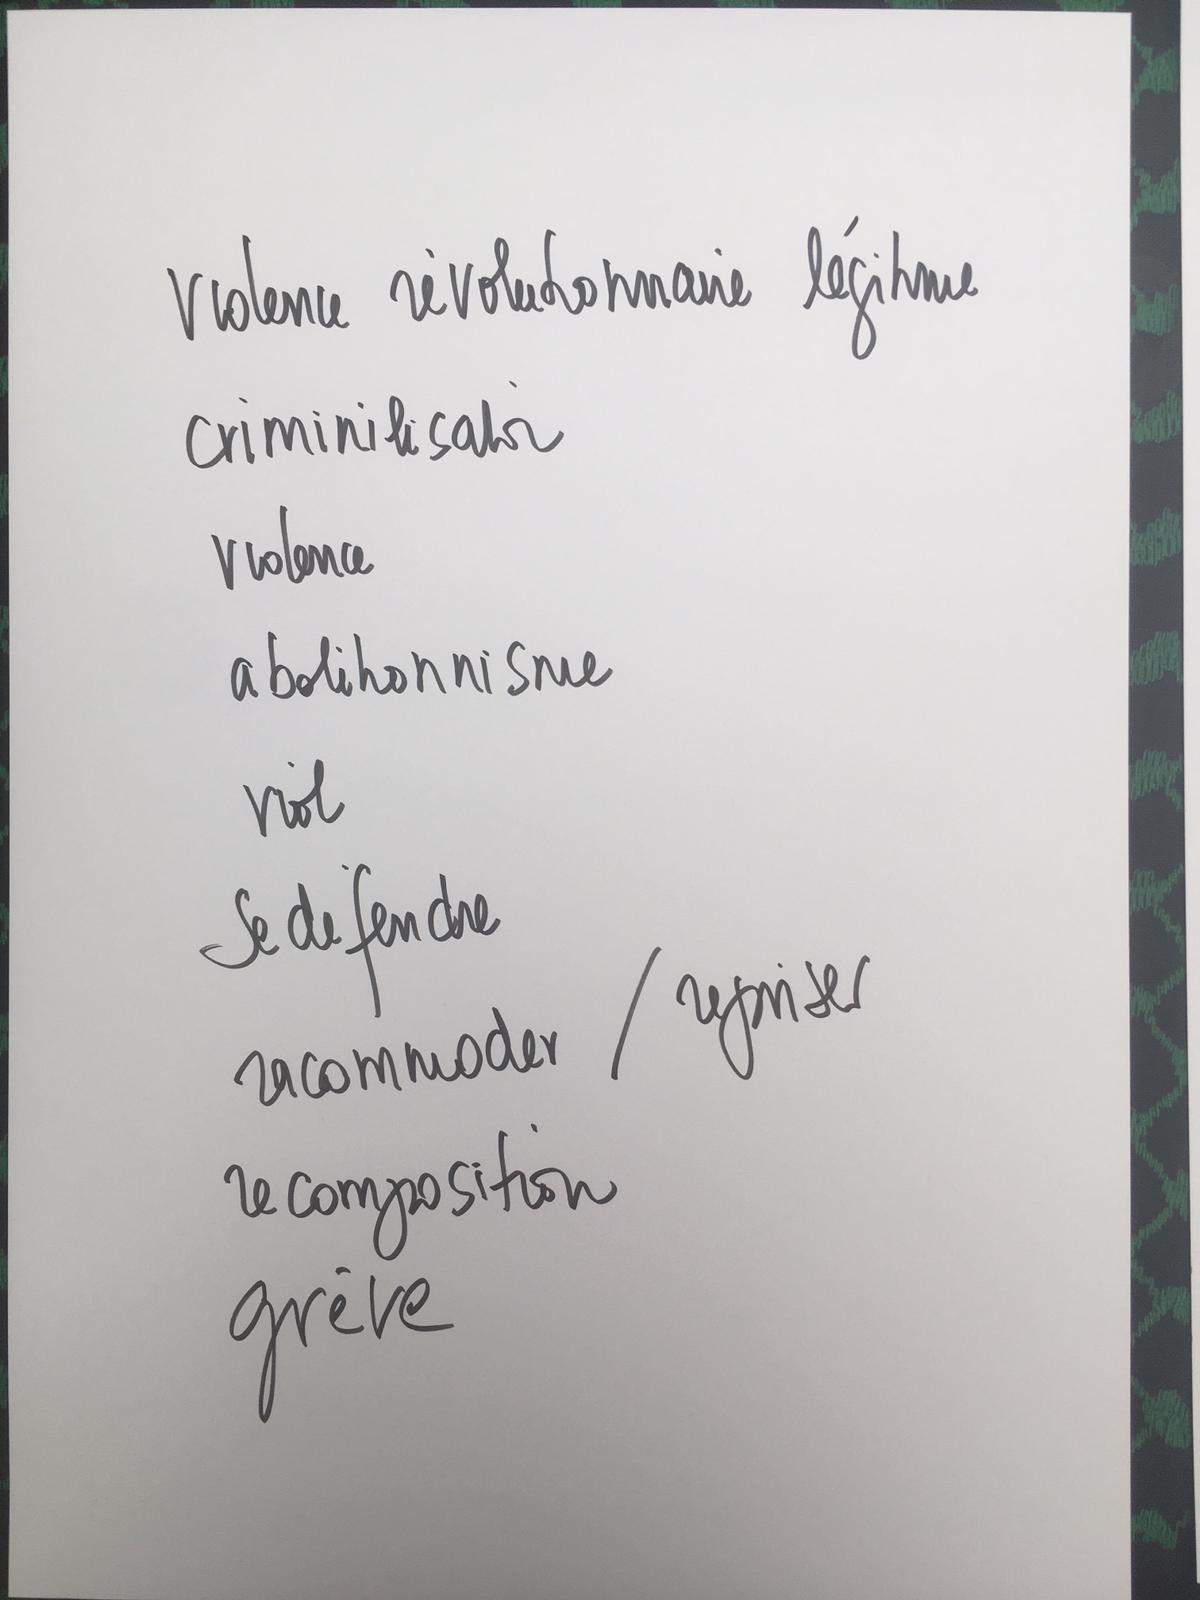 violence révolutionnaire légitime
criminilisation
violence
abolitionnisme
viol
se défendre
racommoder / repriser
recomposition
grève